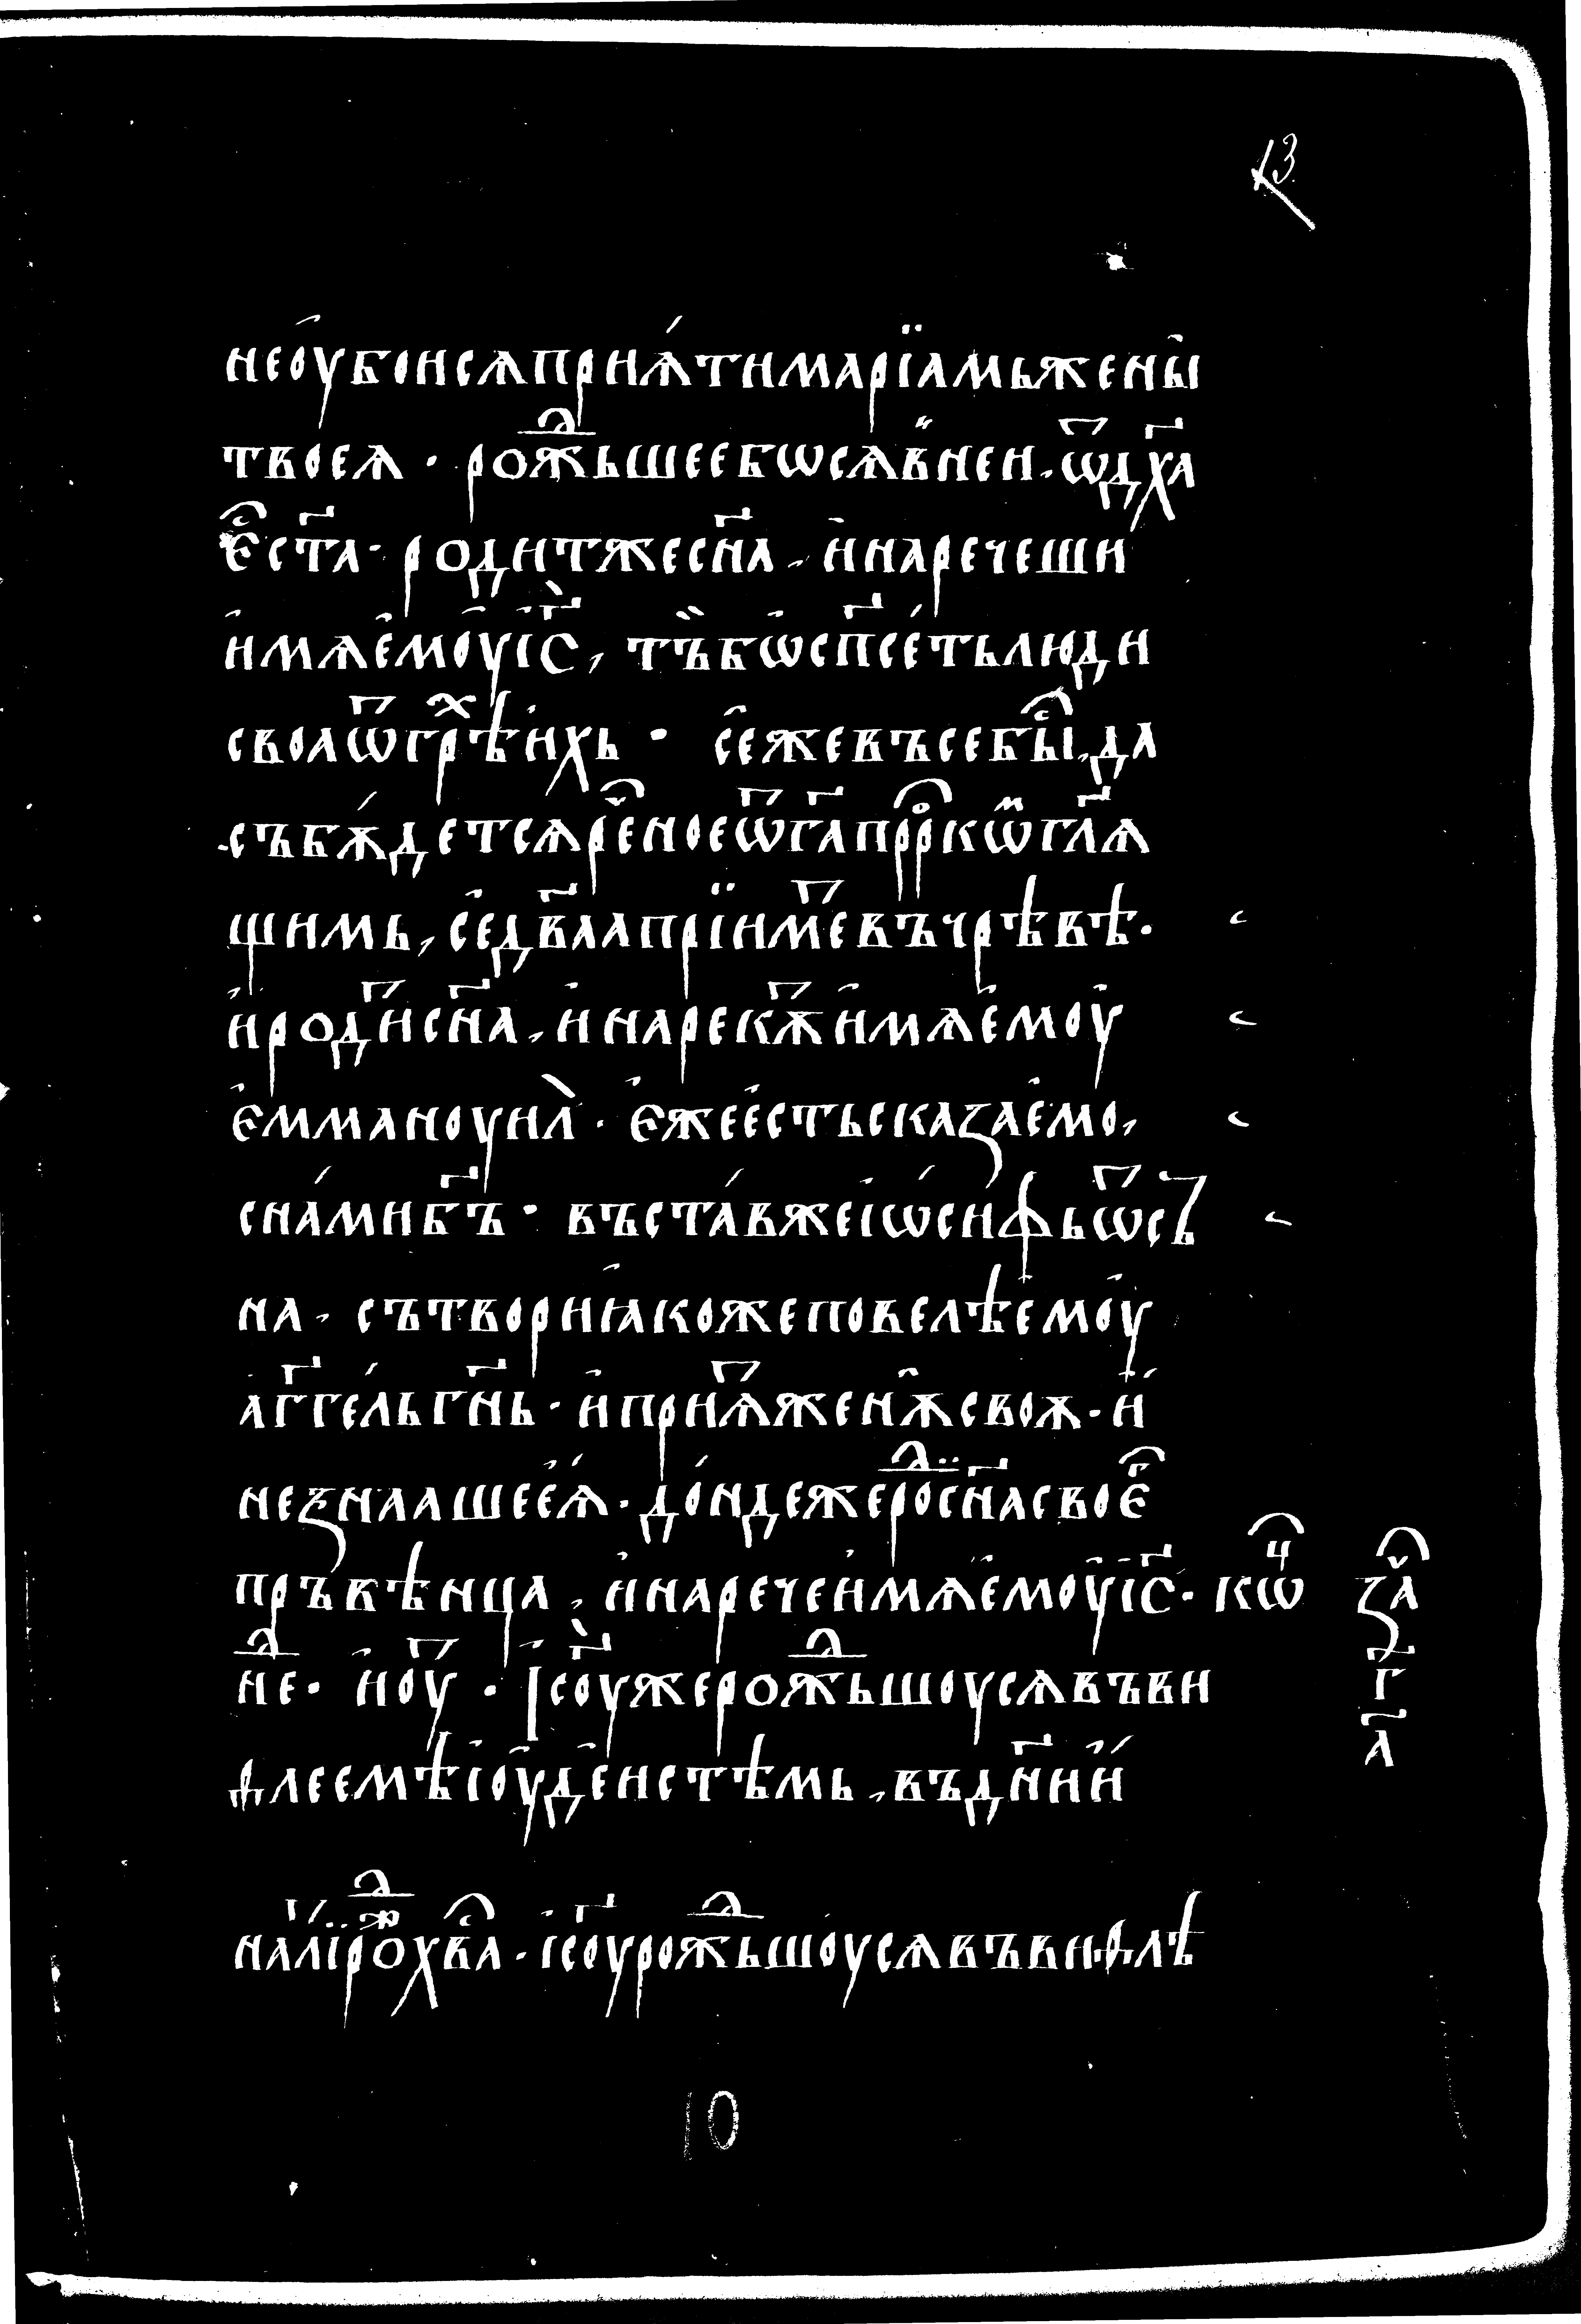 13
не ѹ҆боисѧ прїѧ́ти марїамь жены̀
твоеѧ · рожⷣьшее бѡ сѧ в̾ неи · ѿ дх҃а
є҆сⷭ҇ т҃а · родит же сн҃а , и҆ наречеши
и҆мѧ є҆моѹ҆ і҆с҃ , тъ̏ бѡ̀ сп҃се́ть люди
своа ѿ грⷯѣ и҆хь · се҆ же въсе быⷭ҇ , да
събѫ́детсѧ реⷱ҇ное ѿ г҃а прⷪ҇ркѡⷨ гл҃ѧ
щимь , се҆ дв҃аа прїимⷮе въ чрѣвѣ ·
и҆ родⷮи сн҃а , и҆ нарекⷮѫ и҆мѧ є҆моѹ҆
є҆ммануил̀ · є҆же є҆сть сказае҆мо ,
с на́ми б҃ъ · въста́в же і҆ѡ҆си́фь ѿ съ
на , сътвори ꙗ҆коже повелѣ є҆моѹ҆
а҆г҃ге́ль гн҃ь · и҆ приⷮѧ женѫ̑ своѫ · и҆
не ꙁнааше є҆ѧ̀ · до́ндеже роⷣ сн҃а своеⷢ҇
пръвѣнца , и҆ нарече и҆мѧ є҆моѹ҆ і҆с҃ · кѡⷱ҇
нⷣе · и҆ оуⷮ · І҆с҃оу же рожⷣьшоусѧ въ ви
ѳлеемѣ і҆оу҆де҆истѣмь , въ дн҃и и҆
заⷱ҇
г҃
а҃
на лїⷮ рожⷣ хвⷭ҇а · і҆с҃оу рожⷣьшо́усѧ въ виѳлѣ
10